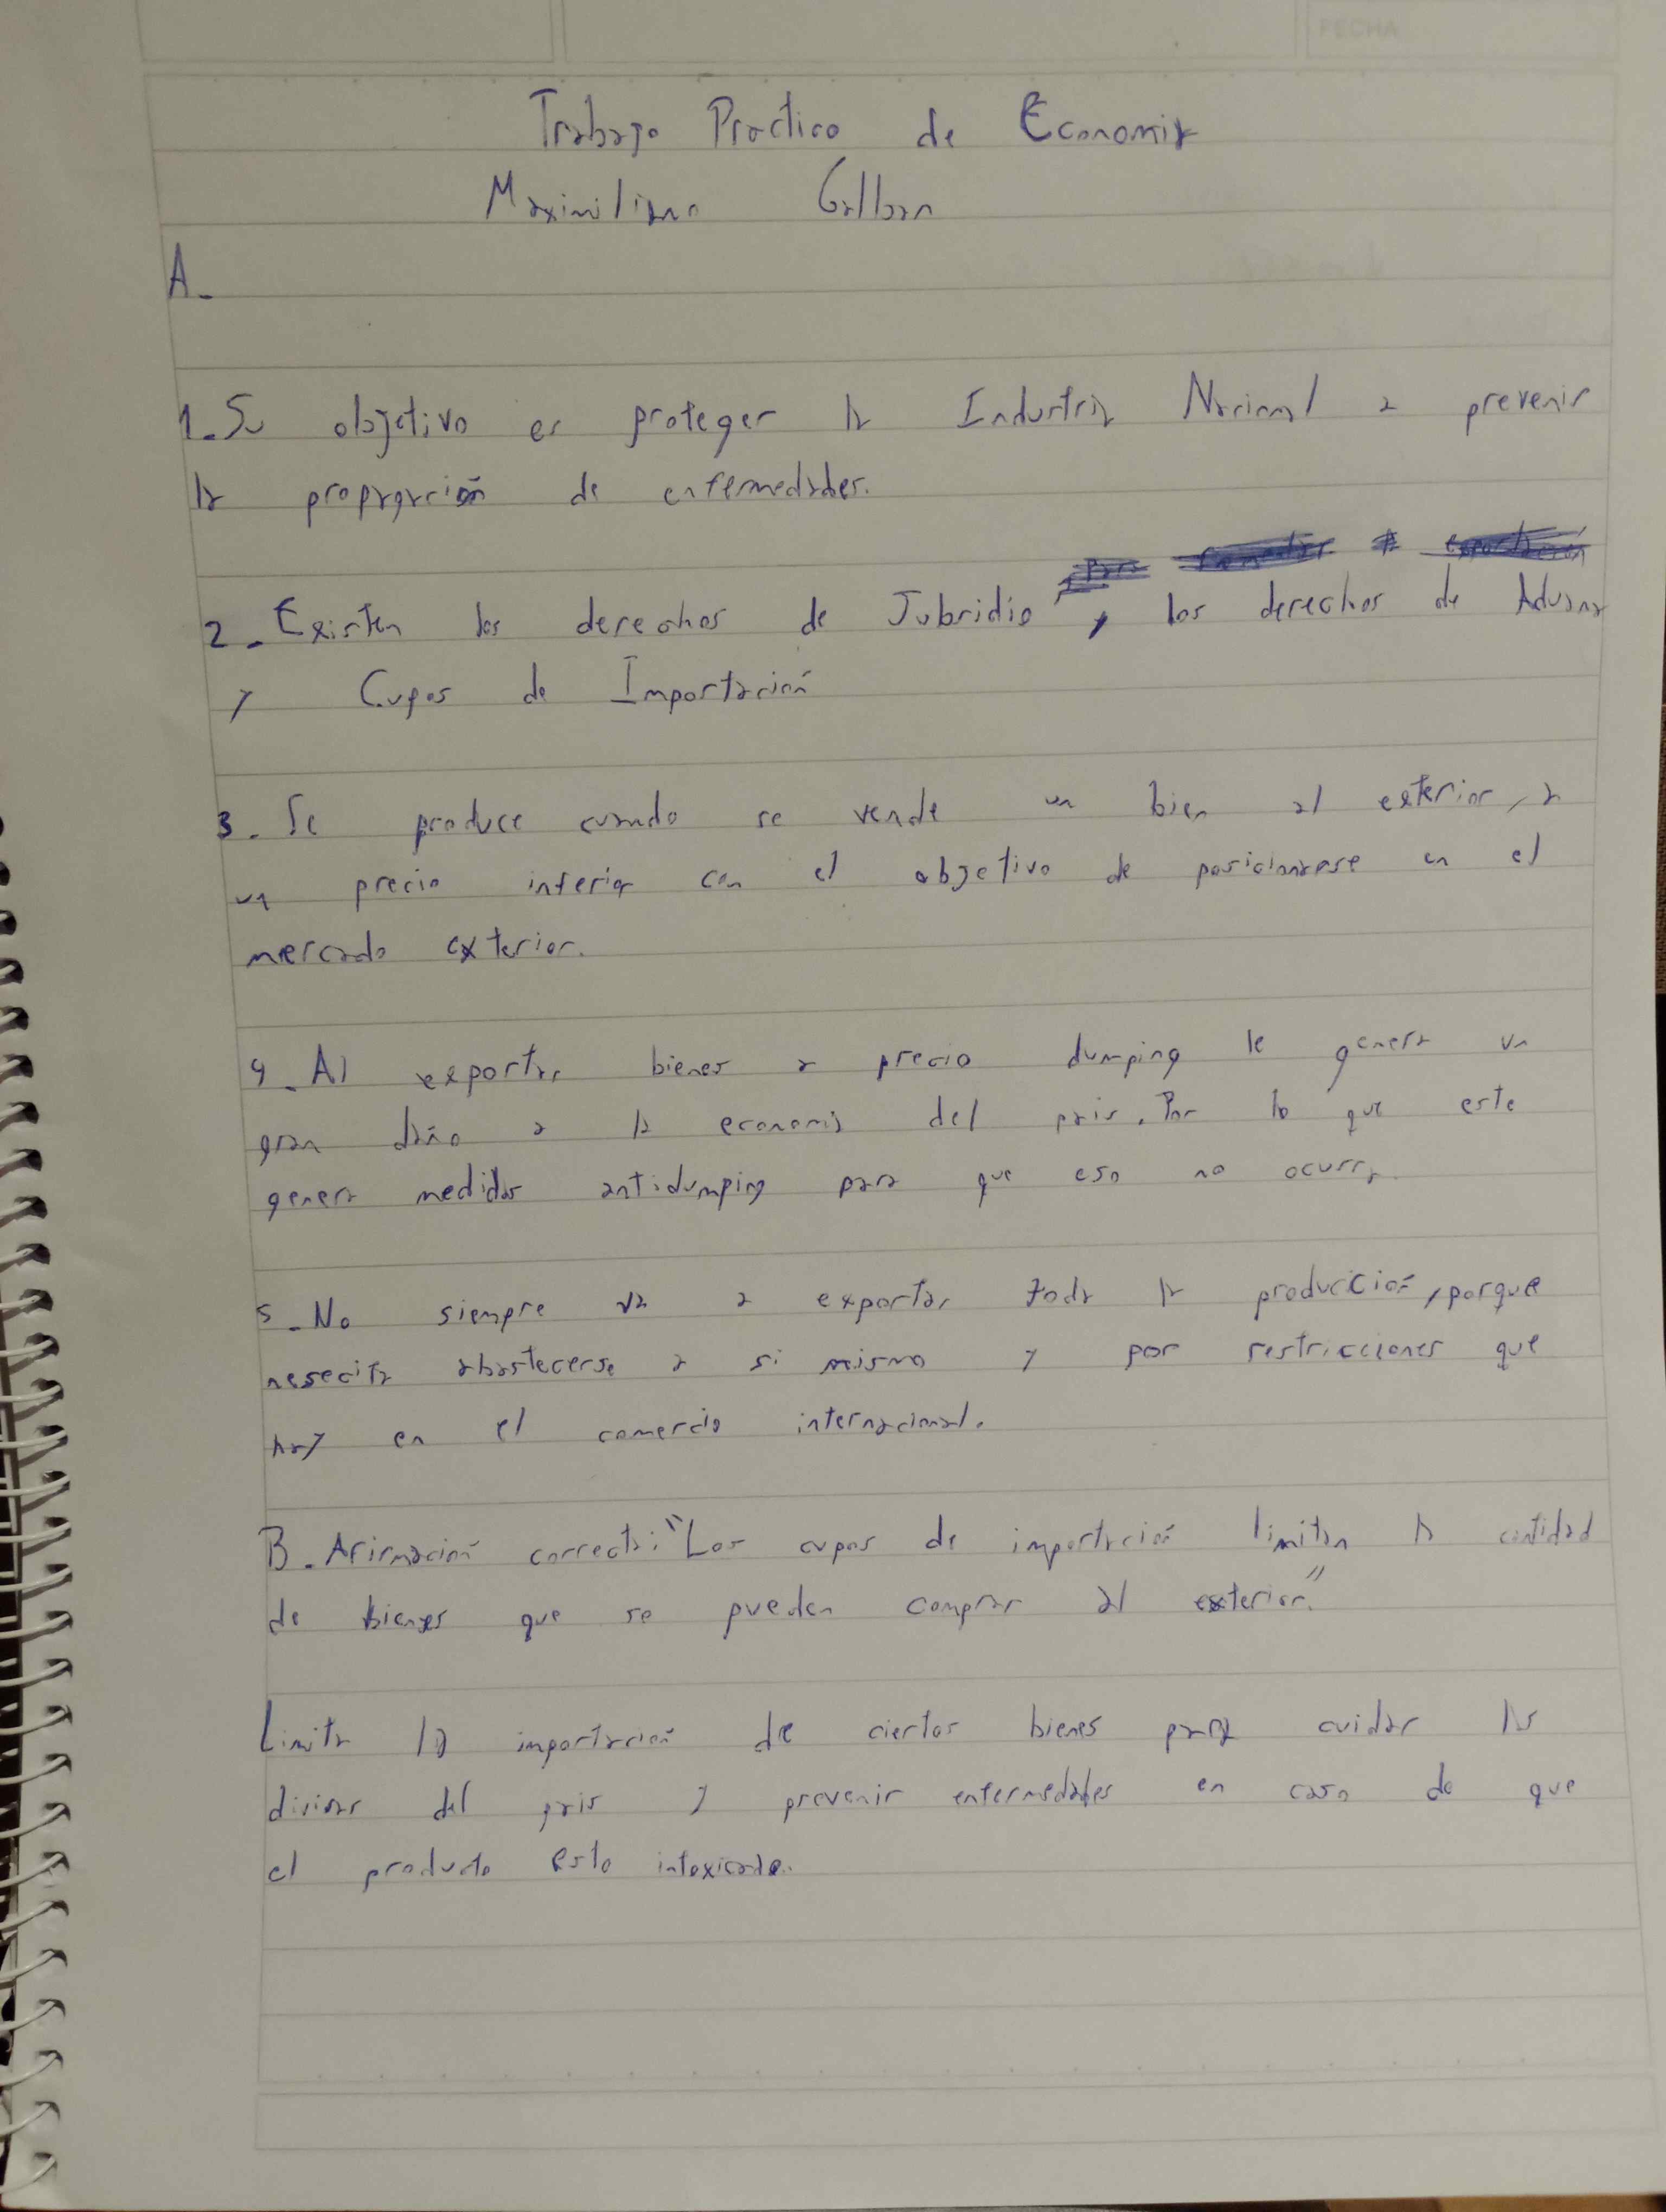 FECHA
Trabajo Practico de Economia
Maximiliano Galban
A.
1. Su objetivo es proteger la Industria Nacional a prevenir
la propagación de enfermedades.
2. Existen los derechos de Subsidio, los derechos de Aduana
y Cupos de Importación
3. Se produce cuando se vende un bien al exterior, a
un precio inferior con el objetivo de posicionarse en el
mercado exterior.
4. Al exportar bienes a precio dumping le genera un
gran daño a la economia del pais. Por lo que este
genera medidas antidumping para que eso no ocurra.
5. No siempre va a exportar toda la producición, porque
nesecita abastecerse a si mismo y por restricciones que
hay en el comercio internacional.
B. Afirmación correcta: "Los cupos de importación limitan la cantidad
de bienes que se pueden comprar al exterior."
Limita la importación de ciertos bienes para cuidar las
divisas del pais y prevenir enfermedades en caso de que
el producto esto intoxicado.